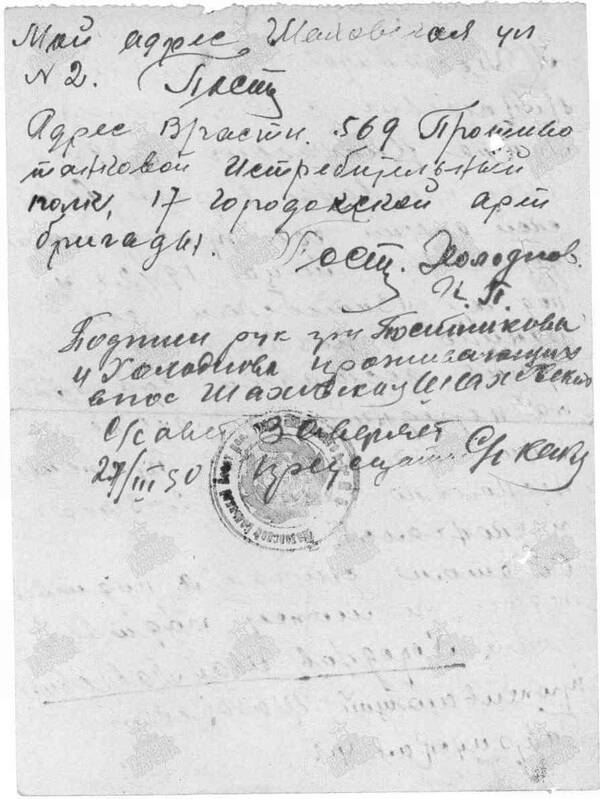 Мой адрес, Шаховская ул
N 2. Пост
Адрес В/части. 569 Противо
танковой Истребительный
полк, 17 Городокской арт
бригады.
Пост. Холоднов.
К. П.
Подписи рук гр-н Постникова
и Холоднова проживающих
в пос Шаховская Шаховской
С/совет Заверяет
27/III 50